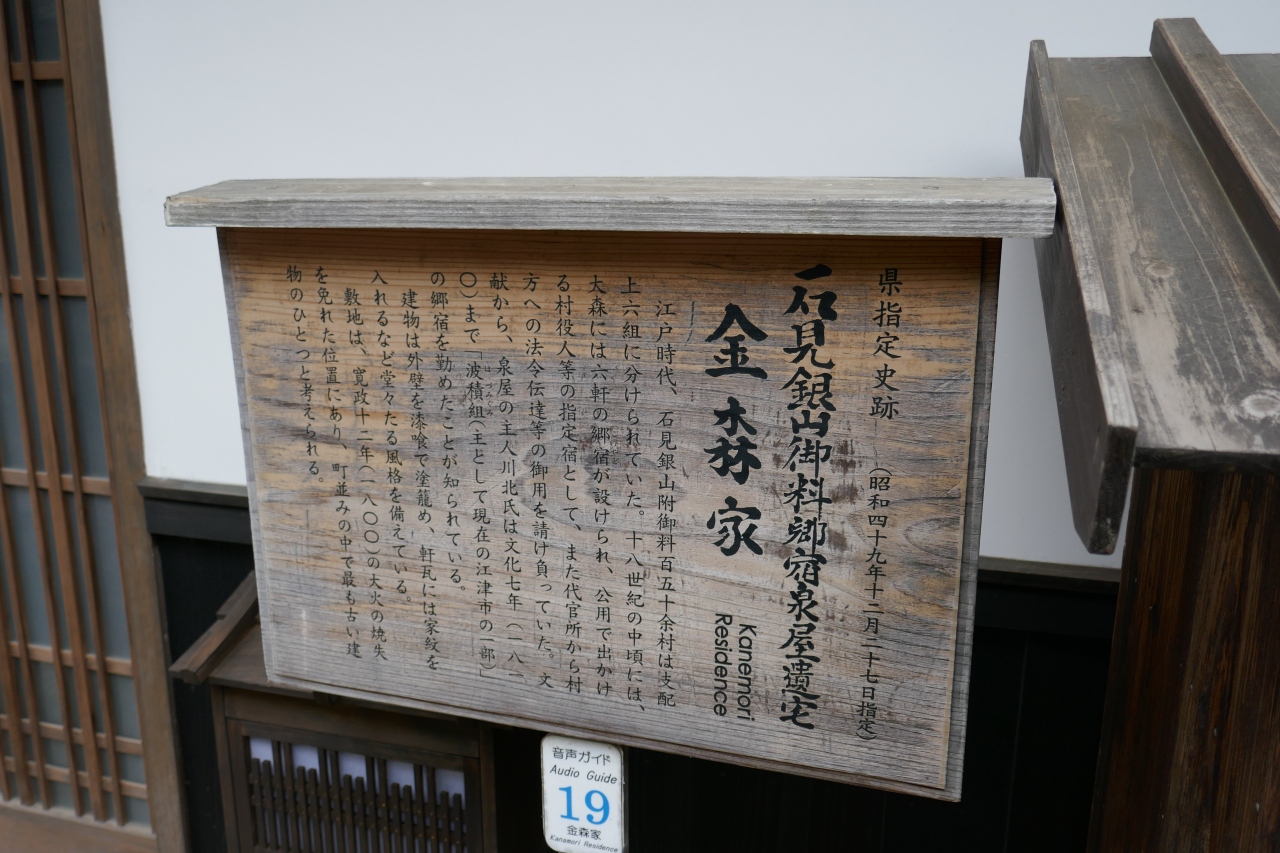 県指定史跡　（昭和四十九年十二月二十七日指定）
石見銀山御料郷宿泉屋遺宅
金森家
Kanemori
Residence
江戸時代、石見銀山附御料百五十余村は支配
上六組に分けられていた。十八世紀の中頃には、
大森には六軒の郷宿が設けられ、公用で出かけ
る村役人等の指定宿として、また代官所から村
方への法令伝達等の御用を請け負っていた。文
献から、泉屋の主人川北氏は文化七年（一八一
〇）まで「波積組（主として現在の江津市の一部）」
の郷宿を勤めたことが知られている。
建物は外壁を漆喰で塗籠め、軒瓦には家紋を
入れるなど堂々たる風格を備えている。
敷地は、寛政十二年（一八〇〇）の大火の焼失
を免れた位置にあり、町並みの中で最も古い建
物のひとつと考えられる。
音声ガイド
Audio Guide
19
金森家
Kanamori Residence